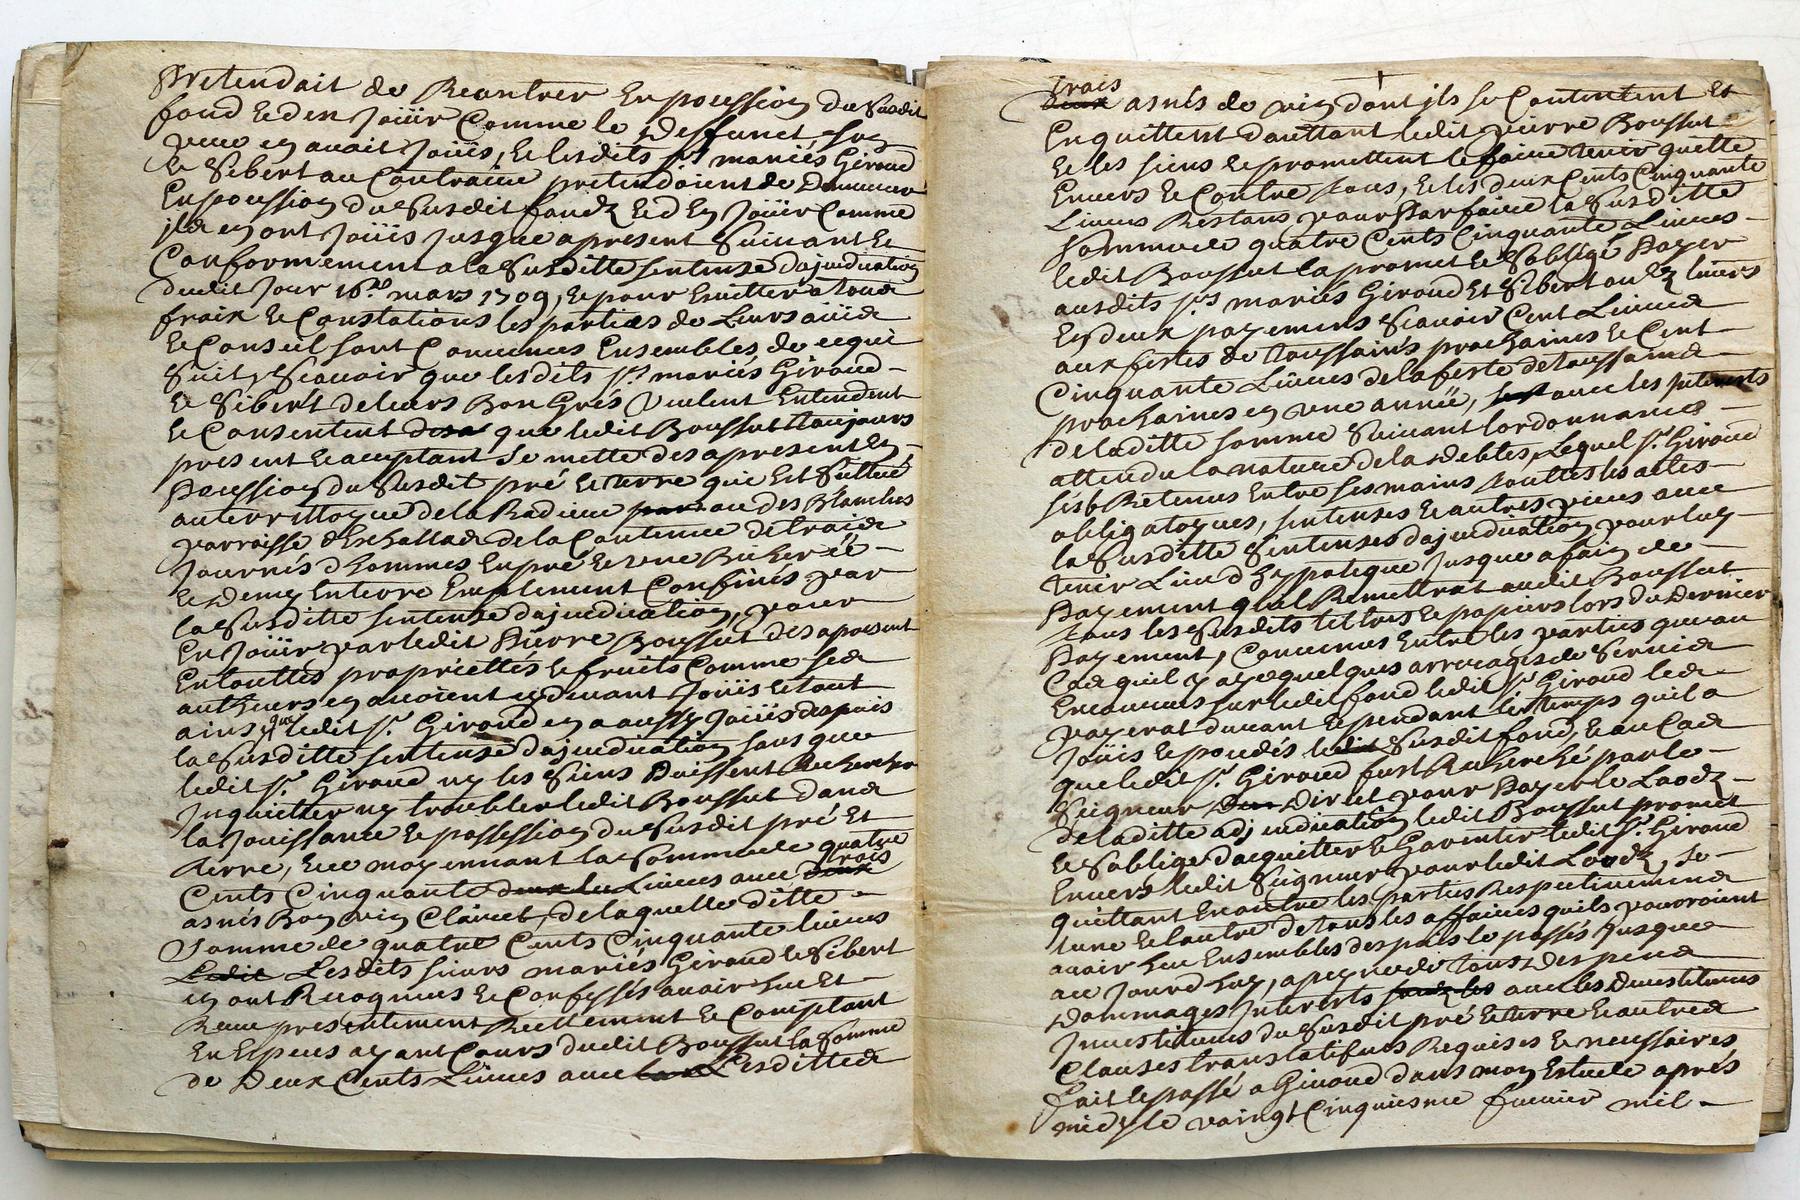 Pretendait de Reantrer En pocession du Susdit
fond Et den Joüir Comme le deffunct son
pere en avait Joüis, Et lesdits Srs mariés Giroud
Et Sibert au Contraire pretendoient de Demeurer
En pocession du Susdit fondz Et d En Joüir Comme
ils en ont Joüis Jusque apresent Suivant Et
Conformement a la Susditte sentense dajudication
dudit Jour 16me mars 1709, Et pour Eviter a tous
fraix Et Constations les parties de Leurs avis
Et Conseil sont Convenues Ensembles de ce qui
Suit, Scavoir que lesdits Srs mariés Giroud
Et Sibert de leurs Bon Grés Veulent Entendent
Et Consentent que ledit Boussut toujours
present Et aceptant Se mette des apresent En
Pocession du Susdit pré Et terre qui Est Sittué
au territtoyre de la Radieue au des Blanches
parroisse dEschallas de la Contenue de trois
Journés dhommes En pré Et une Bicherée
Et Demy En terre Emplement Confinés par
la Susditte sentense dajudication, pour
En Joüir par ledit Pierre Boussut des apresent
En touttes propriettés Et fruits Comme ses
autheurs en avoient cy devant Joüis Et tout
ainsy que ledit Sr Giroud en a aussy Joüis despuis
la Susditte sentense dajudication sans que
ledit Sr Giroud ny les Siens Puissent Rechercher
Inquietter ny troubler ledit Boussut dans
la Jouissance Et possession du Susdit pré Et
terre, Et ce moyennant la Somme de quatre
Cents Cinquante Livres avec trois
asnés Bon vin Clairet, de laquelle ditte
Somme de quatre Cents Cinquante livres
Ledit Lesdits sieurs mariés Giroud Et Sibert
en ont Recognus Et Confessés avoir Eue Et
Receue presentement Reellement Et Comptant
En Especes ayant Cours dudit Boussut la Somme
de Deux Cents Livres avec Lesdittes
trois
deux asnés de vin dont ils se Contentent Et
En quittent dauttant ledit pierre Boussut
Et les siens Et promettent le faire tenir quitte
Envers Et Contre tous, Et les deux Cents Cinquante
Livres Restans pour Starfaire la Susditte
Somme de quatre Cents Cinquante Livres
ledit Boussut la promet Et Soblige Payer
ausdits Srs mariés Giroud Et Sibert
En deux payemens Scavoir Cent Livres
aux festes de Toussains prochaines Et Cent
Cinquante Livres de la feste de toussains
prochaines en une année, avec les Interests
de laditte somme Suivant lordonnance
attendu la nature de la debtes, Lequel Sr Giroud
sest Retenus Entre ses mains touttes les actes
obligatoyres, sentenses Et autres pieces avec
la Susditte Sentenses dajudication pour luy
tenir Lieu dhypoteque Jusque a fain de
Payement quil Remettrat audit Boussut
tous les Susdits tittres Et papiers lors du Dernier
Payement, Convenus Entre les parties que au
Cas quil y aye quelques arrerages de Servis
Encourues sur ledit fond ledit Sr Giroud les
payerat durant Et pendant le temps quil a
Joüis Et pocedés ledit Susdit fond, Et au Cas
que ledit Sr Giroud fust Recherché par le
Seigneur Direct pour Payer le Laodz
de laditte adjudication ledit Boussut promet
Et Soblige dacquitter Et Garentir ledit Sr Giroud
Envers ledit Seigneur pour ledit Laodz, Se
quittant Encontre les parties Respectivement
lune Et lautre de tous les affaires quils pourroient
avoir Eue Ensembles despuis le passés Jusque
au Jourdhuy, a peyne de tous despens
Dommages Interests avec les Devestitures
Investitures du Susdit pré Et terre Et autres
Clauses translatifues Requises Et necessaires
fait Et passé a Givord dans mon Estude aprés
midy le vaingt Cinquiesme fevrier mil